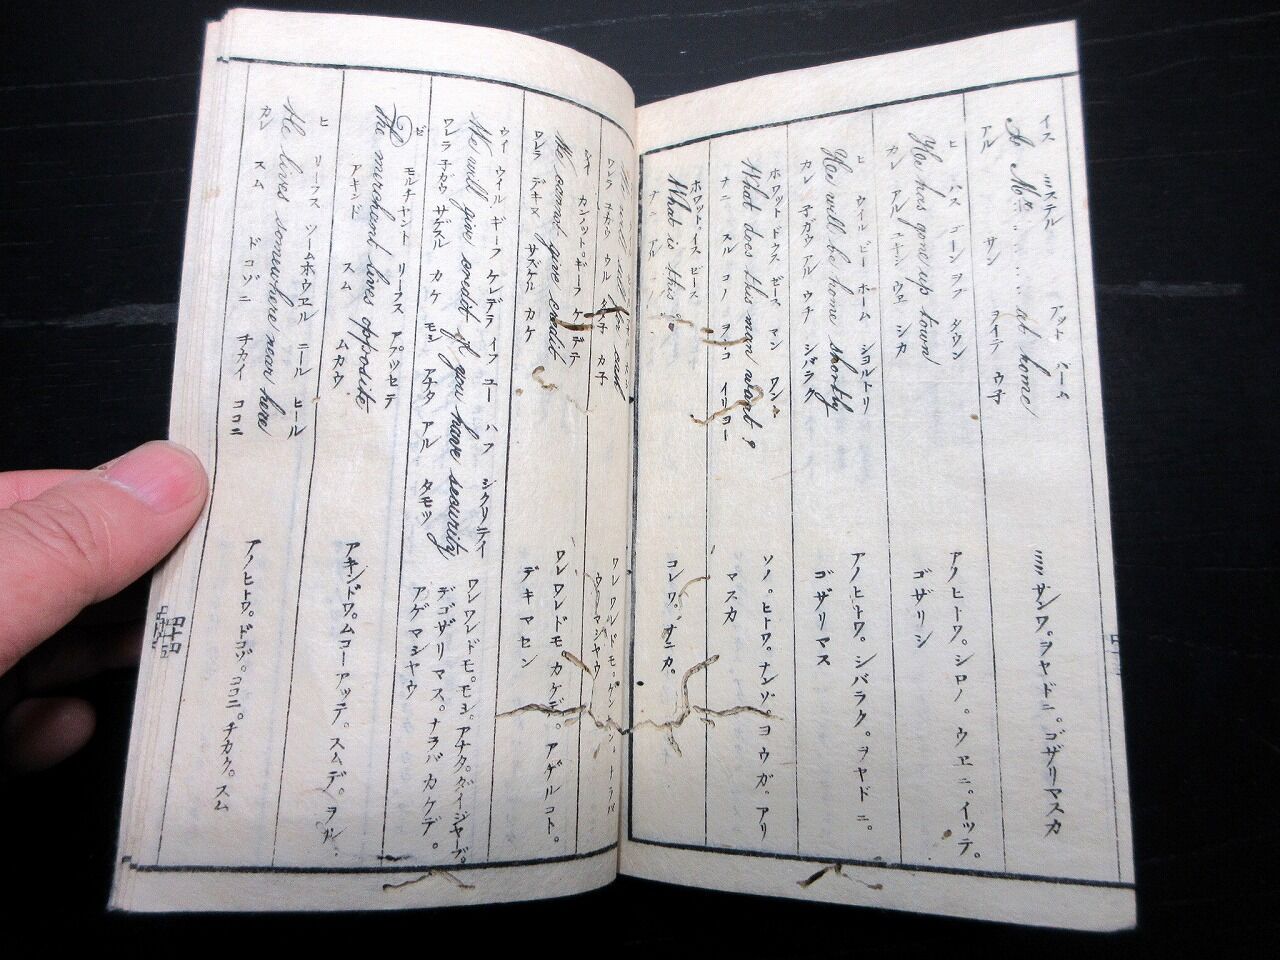 イス ミステル アット ホーム
Is Mr. ..... at home
アル サン ヲイテ ウチ
ミミサンワ。ヲヤドニ。ゴザリマスカ
ヒ ハス ゴーン ヲフ タウン
He has gone up town
カレ アル ユキシ ウヱ シカ
アノヒトワ。シロノ。ウヱニ。イッテ。
ゴザリシ
ヒ ウイル ビー ホーム ショルトリ
He will be home shortly
カレ 子ガウ アル ウチ シバラク
アノヒトワ。シバラク。ヲヤドニ。
ゴザリマス
ホワット ドウス ゼース マン ワント
What does this man want?
ナニ スル コノ ヲトコ イリヨー
ソノ。ヒトワ。ナンゾ。ヨウガ。アリ
マスカ
ホワット。イス ゼース
What is this?
ナニ アル
コレワ。ナニカ。
We will sell for cash
ウイ カンノット。ギーフ ケレデテ
We cannot give credit
ワレラ デキヌ サズケル カケ
ワレワレドモ カケデ。アゲルコト。
デキマセン
ウイ ウイル ギーフ ケレデラ イフ ユー ハフ シクリテイ
We will give credit if you have security
ワレラ 子ガウ サズスル カケ モシ アナタ アル タモツ
ワレワレドモ。モシ。アナタ。ダイジヤーデ。
デゴザリマス。ナラバ カケデ。
アゲマシヤウ
ゼ モルチヤント リーフス アプッセテ
The merchant lives opposite
アキンド スム ムカウ
アキンドワ。ムコーアッテ。スムデ。ヲル.
ヒ リーフス ソームホウヱル ニール ヒール
He lives somewhere near here
カレ スム ドコゾニ チカイ ココニ
アノヒトワ。ドコゾ。ココニ。チカク。スム